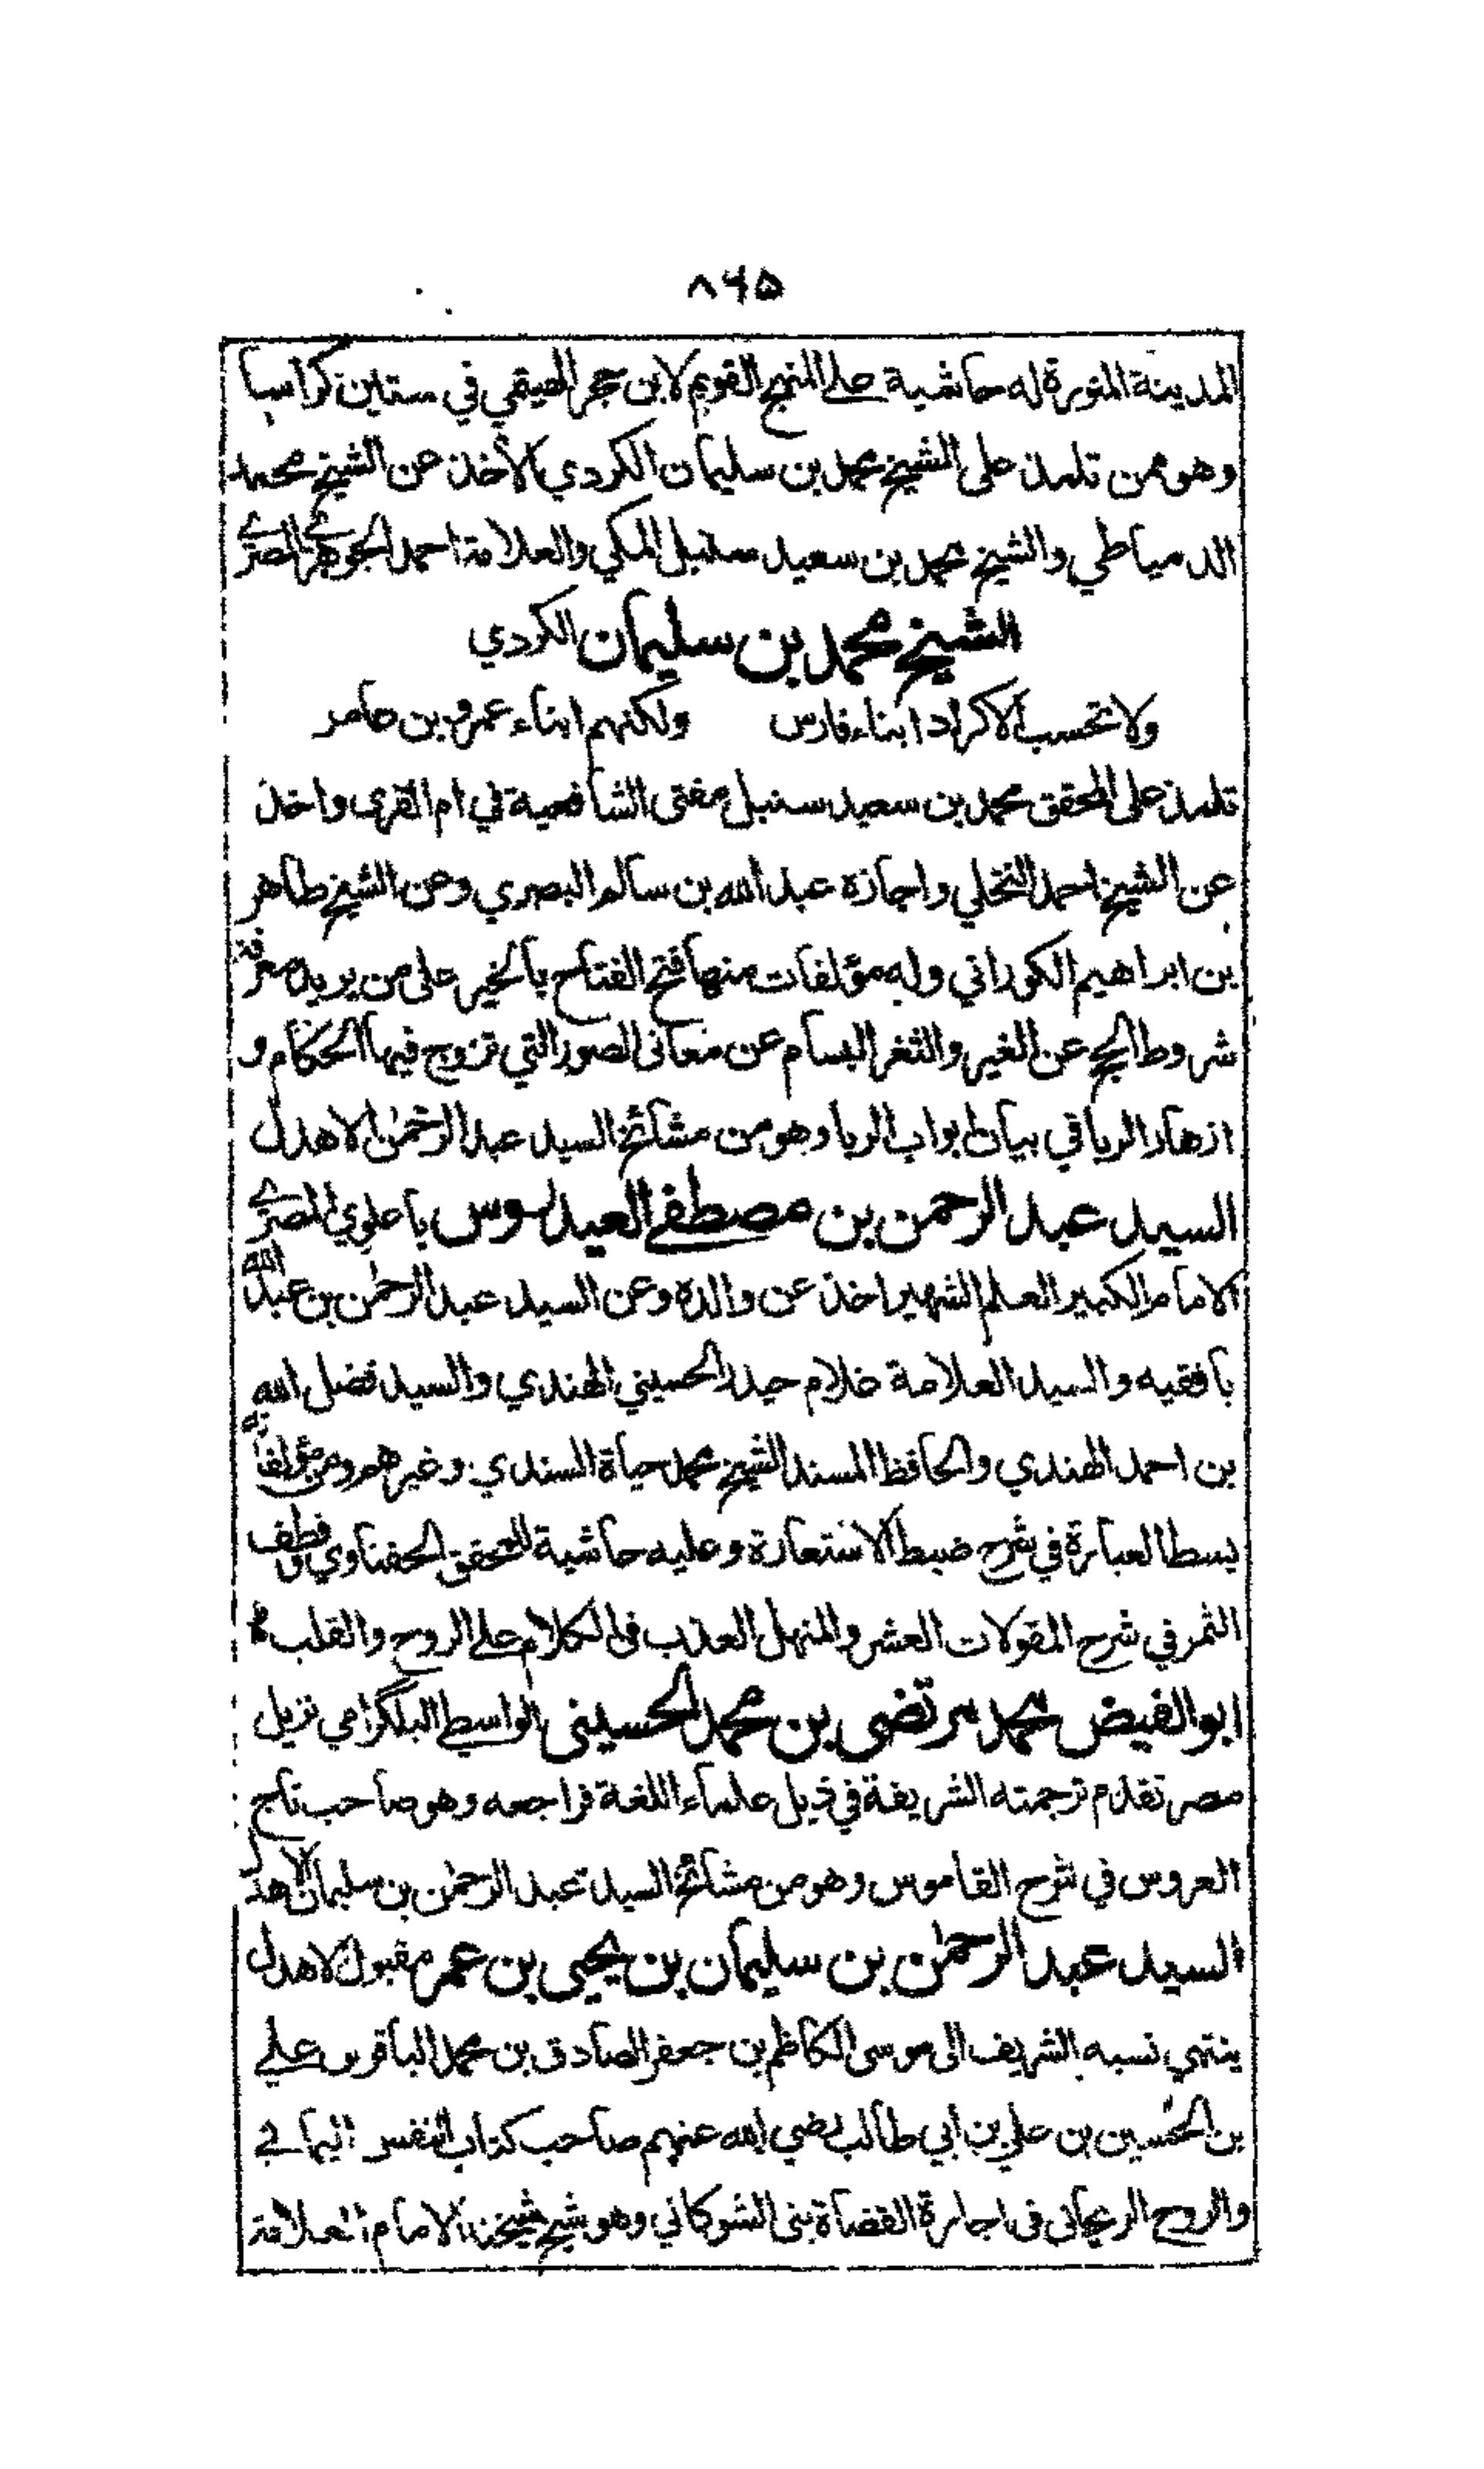 ٨٦٥
المدينة المنورة له حاشية على المنهج القويم لابن حجر الهيتمي في ستين كراسا
وهو ممن تلمذ على الشيخ محمد بن سليمان الكردي الأخذ عن الشيخ محمد
الدمياطي والشيخ محمد بن سعيد سنبل المكي والعلامة احمد الجوهري المصري
الشيخ محمد بن سليمان الكردي
ولا تحسب الاكراد ابناء فارس ولكنهم ابناء عمرو بن عامر
تلمذ على المحقق محمد بن سعيد سنبل مفتى الشافعية في ام القرى واخذ
عن الشيخ احمد النخلي واجازه عبد الله بن سالم البصري وعن الشيخ طاهر
بن ابراهيم الكوراني وله مؤلفات منها فتح الفتاح بالخير على من يريد معرفة
شروط الحج عن الغير والثغر البسام عن معانى الصور التي تزوج فيها الحكام و
ازهار الربا في بيان ابواب الربا وهو من مشائخ السيد عبد الرحمٰن الاهدل
السيد عبد الرحمن بن مصطفے العيدروس باعلوي المصرے
الامام الكبير العلم الشهير اخذ عن والده وعن السيد عبد الرحمٰن بن عبد الله
بافقيه والسيد العلامة غلام حيدر الحسيني الهندي والسيد فضل الله
بن احمد الهندي والحافظ المسند الشيخ محمد حياة السندي وغيرهم ومن مؤلفاته
بسط العبارة في شرح ضبط الاستعارة وعليه حاشية للمحقق الحفناوي وقطف
الثمر في شرح المقولات العشر والمنهل العذب فى الكلام على الروح والقلب
ابو الفيض محمد مرتضى بن محمد الحسينى الواسطي البلگرامي نزيل
مصر تقدم ترجمته الشريفة في ذيل علماء اللغة فراجعه وهو صاحب تاج
العروس في شرح القاموس وهو من مشائخ السيد عبد الرحمٰن بن سليمان الاهدل
السيد عبد الرحمٰن بن سليمان بن يحيى بن عمر مقبول الاهدل
ينتهي نسبه الشريف الى موسى الكاظم بن جعفر الصادق بن محمد الباقر بن علي
بن الحُسين بن علي بن ابي طالب رضي الله عنهم صاحب كتاب النفس اليمانے
والروح الريحانى فى اجازة القضاة بنى الشوكاني وهو شيخ شيخنا الامام العلامة